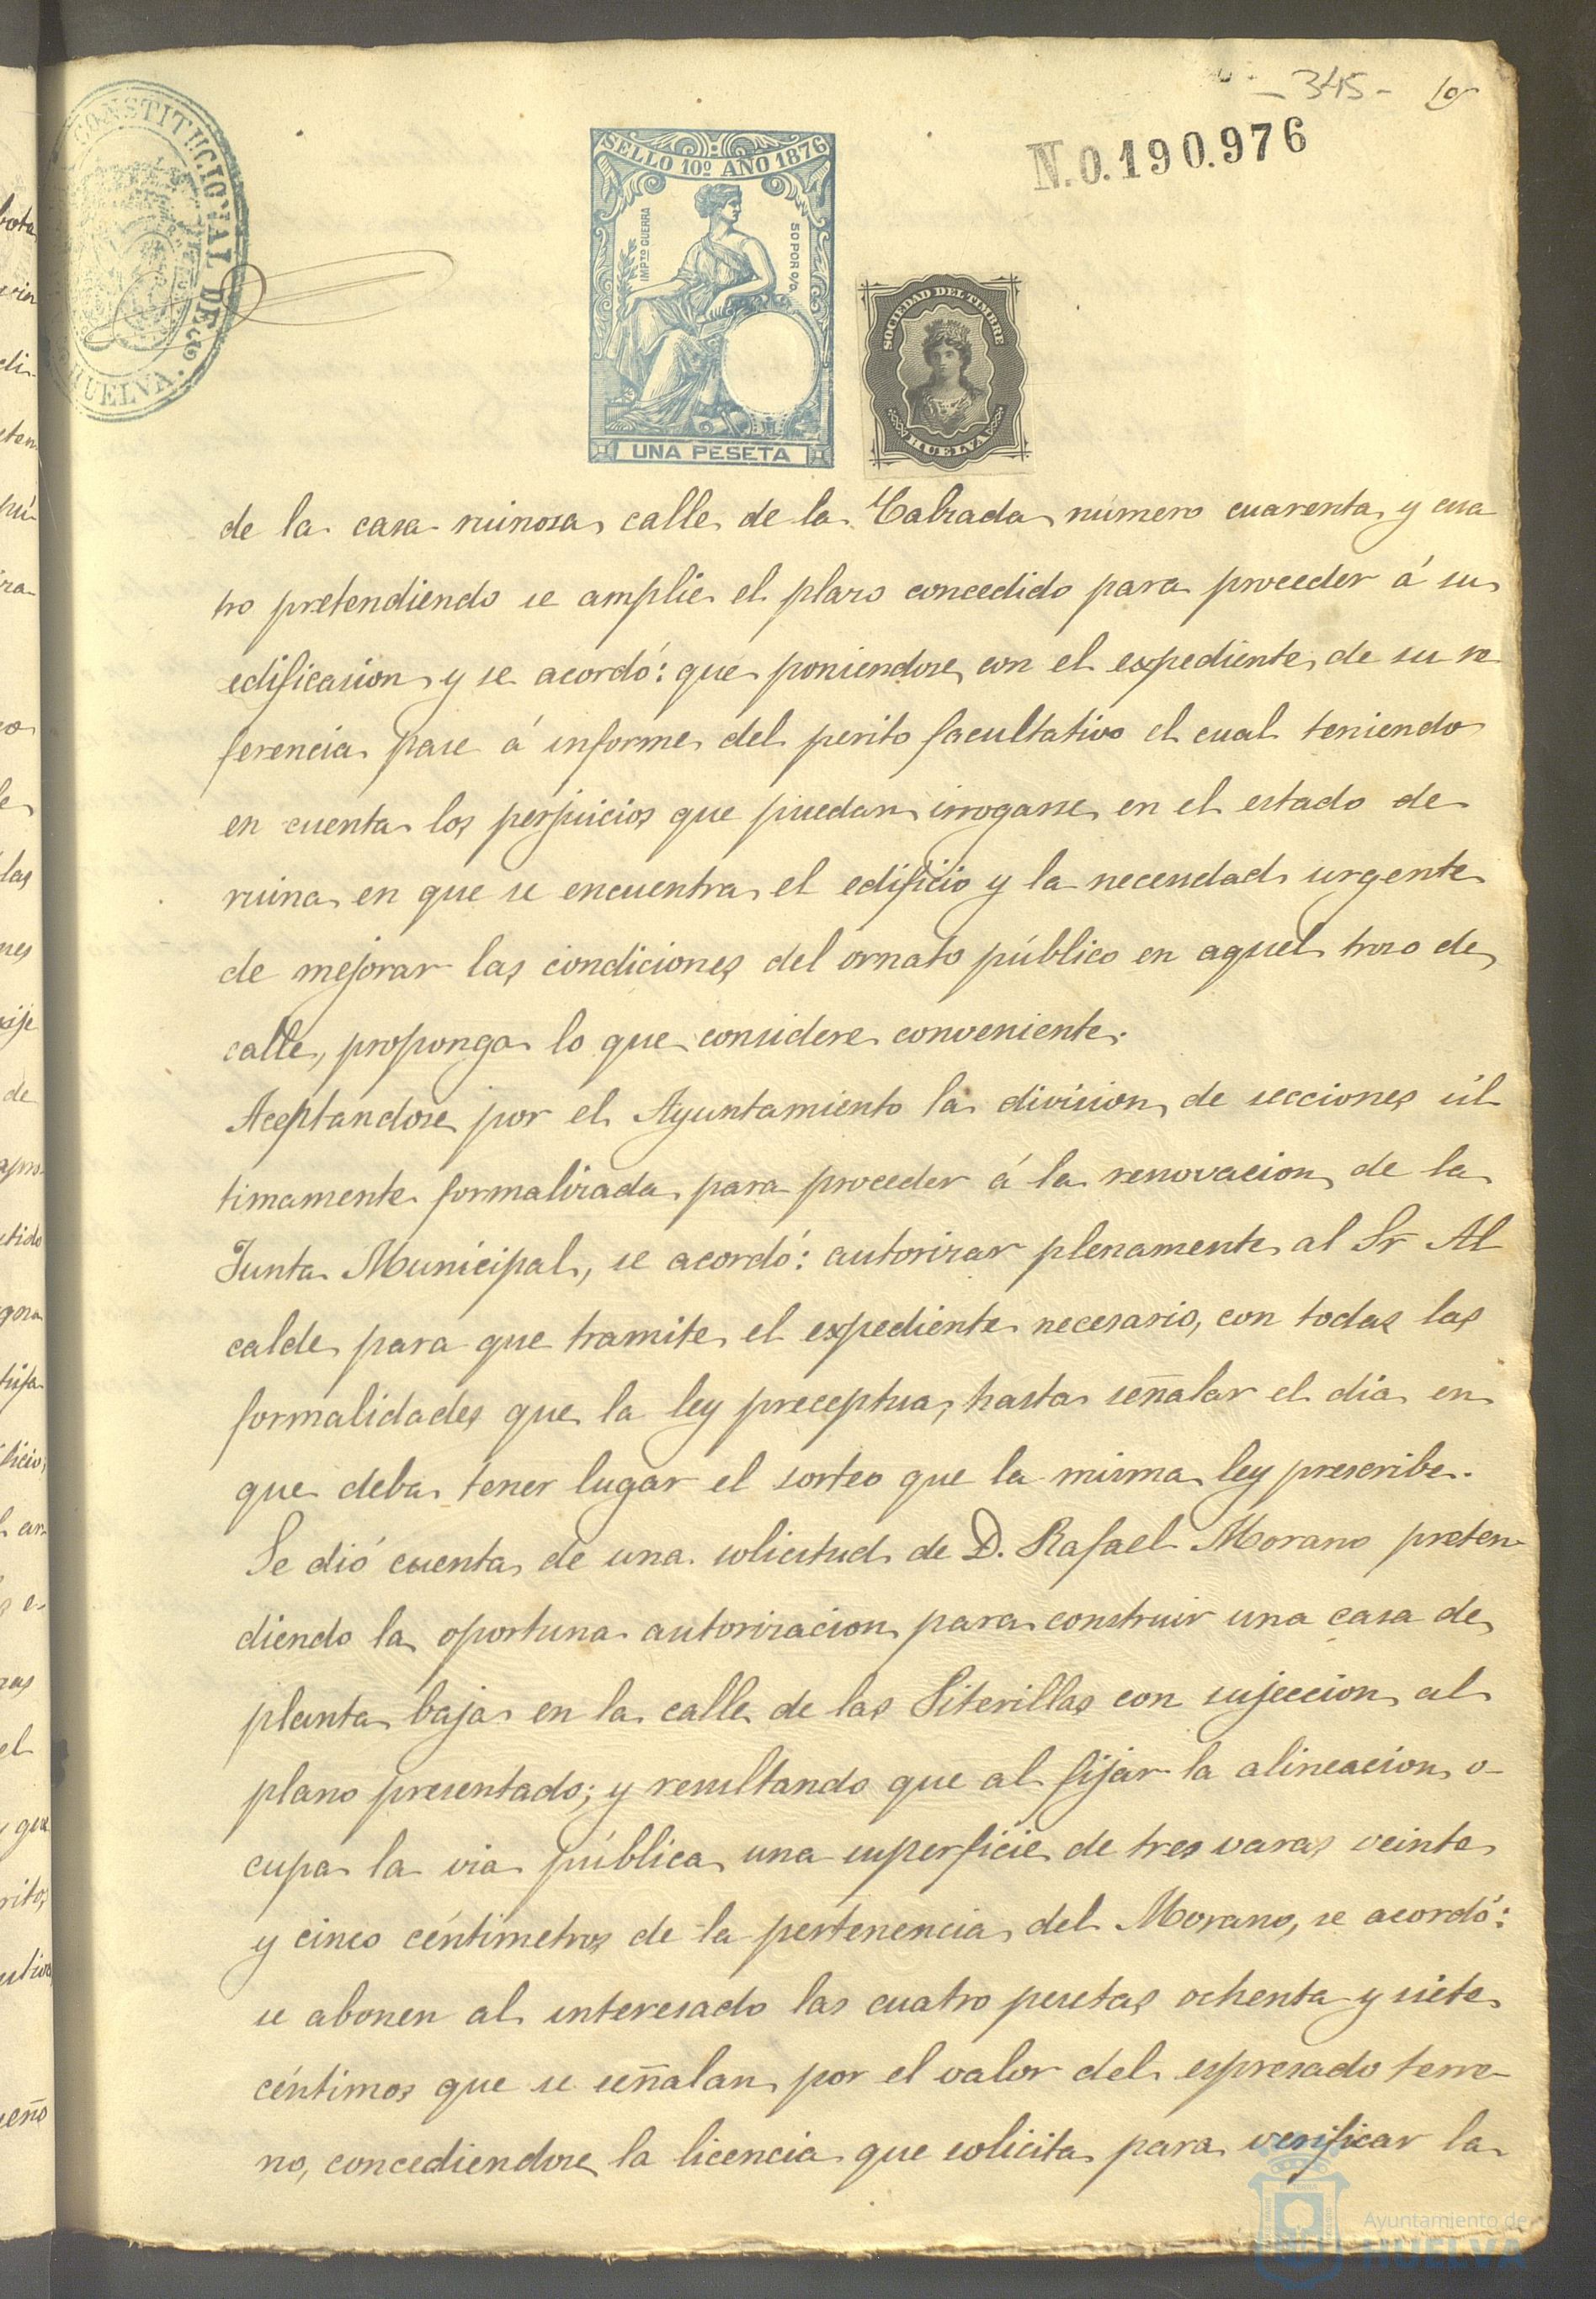 - 345 -
N.0.190.976
CONSTITUCIONAL DE
HUELVA.
SELLO 10º AÑO 1876
IMPTO GUERRA
50 POR 0/0.
UNA PESETA
SOCIEDAD DEL TIMBRE
HUELVA
de la casa ruinosa calle de la Calzada número cuarenta y cua
tro pretendiendo se amplie el plazo concedido para proceder á su
edificacion y se acordó: que poniendose con el expediente de su re
ferencia pase á informe del perito facultativo el cual teniendo
en cuenta los perjuicios que puedan irrogarse en el estado de
ruina en que se encuentra el edificio y la necesidad urgente
de mejorar las condiciones del ornato público en aquel trozo de
calle, proponga lo que considere conveniente.
Aceptandose por el Ayuntamiento la division de secciones úl
timamente formalizada para proceder á la renovacion de la
Junta Municipal, se acordó: autorizar plenamente al Sr Al
calde para que tramite el expediente necesario, con todas las
formalidades que la ley preceptua, hasta señalar el dia en
que deba tener lugar el sorteo que la misma ley prescribe.
Se dió cuenta de una solicitud de D. Rafael Morano preten-
diendo la oportuna autorizacion para construir una casa de
planta baja en la calle de las Piterillas con sujeccion al
plano presentado; y resultando que al fijar la alineacion o-
cupa la via pública una superficie de tres varas veinte
y cinco céntimetros de la pertenencia del Morano, se acordó:
se abonen al interesado las cuatro pesetas ochenta y siete
céntimos que se señalan por el valor del espresado terre-
no, concediendose la licencia que solicita para verificar la
Ayuntamiento de
HUELVA